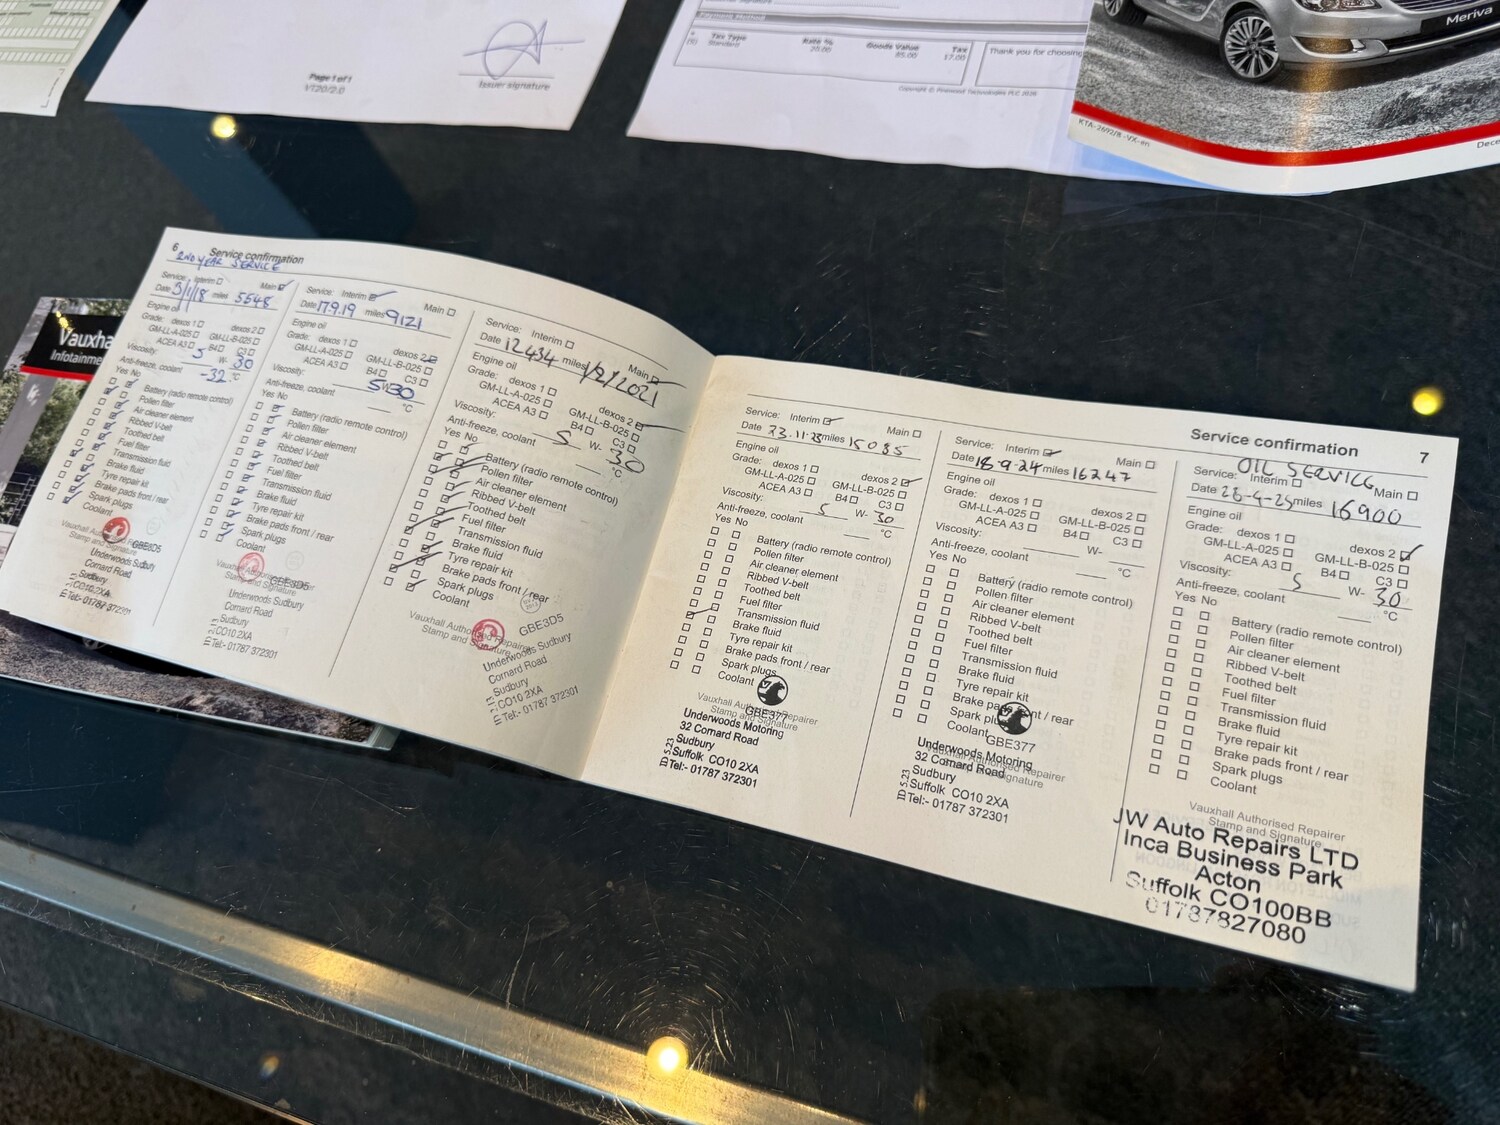 Page 1 of 1
VT20/2.0
Issuer signature
Payment Method
Tax Type Rate % Goods Value Tax
Standard 20.00 85.00 17.00
Thank you for choosing
Meriva
KTA-2692/8-VX-en
Dece
Vauxha
Infotainme
6 Service confirmation
2ND YEAR SERVICE
Service: Interim Main
Date 3/1/18 miles 5548
Engine oil
Grade: dexos 1 dexos 2
GM-LL-A-025 GM-LL-B-025
ACEA A3 B4 C3
Viscosity: 5 W- 30
Anti-freeze, coolant -32 °C
Yes No
Battery (radio remote control)
Pollen filter
Air cleaner element
Ribbed V-belt
Toothed belt
Fuel filter
Transmission fluid
Brake fluid
Tyre repair kit
Brake pads front / rear
Spark plugs
Coolant
GBE3D5
Underwoods Sudbury
Cornard Road
Sudbury
CO10 2XA
Tel:- 01787 372301
Service: Interim Main
Date 17.9.19 miles 9121
Engine oil
Grade: dexos 1 dexos 2
GM-LL-A-025 GM-LL-B-025
ACEA A3 B4 C3
Viscosity: 5 W- 30
Anti-freeze, coolant °C
Yes No
Battery (radio remote control)
Pollen filter
Air cleaner element
Ribbed V-belt
Toothed belt
Fuel filter
Transmission fluid
Brake fluid
Tyre repair kit
Brake pads front / rear
Spark plugs
Coolant
GBE3D5
Underwoods Sudbury
Cornard Road
Sudbury
CO10 2XA
Tel:- 01787 372301
Service: Interim Main
Date 12434 miles 1/2/2021
Engine oil
Grade: dexos 1 dexos 2
GM-LL-A-025 GM-LL-B-025
ACEA A3 B4 C3
Viscosity: 5 W- 30
Anti-freeze, coolant °C
Yes No
Battery (radio remote control)
Pollen filter
Air cleaner element
Ribbed V-belt
Toothed belt
Fuel filter
Transmission fluid
Brake fluid
Tyre repair kit
Brake pads front / rear
Spark plugs
Coolant
Vauxhall Authorised Repairer
Stamp and Signature
GBE3D5
Underwoods Sudbury
Cornard Road
Sudbury
CO10 2XA
Tel:- 01787 372301
Service confirmation 7
Service: Interim Main
Date 23.11.23 miles 15085
Engine oil
Grade: dexos 1 dexos 2
GM-LL-A-025 GM-LL-B-025
ACEA A3 B4 C3
Viscosity: 5 W- 30
Anti-freeze, coolant °C
Yes No
Battery (radio remote control)
Pollen filter
Air cleaner element
Ribbed V-belt
Toothed belt
Fuel filter
Transmission fluid
Brake fluid
Tyre repair kit
Brake pads front / rear
Spark plugs
Coolant
Vauxhall Authorised Repairer
Stamp and Signature
GBE377
Underwoods Motoring
32 Cornard Road
Sudbury
Suffolk CO10 2XA
Tel:- 01787 372301
Service: Interim Main
Date 18-9-24 miles 16247
Engine oil
Grade: dexos 1 dexos 2
GM-LL-A-025 GM-LL-B-025
ACEA A3 B4 C3
Viscosity: W-
Anti-freeze, coolant °C
Yes No
Battery (radio remote control)
Pollen filter
Air cleaner element
Ribbed V-belt
Toothed belt
Fuel filter
Transmission fluid
Brake fluid
Tyre repair kit
Brake pads front / rear
Spark plugs
Coolant
GBE377
Underwoods Motoring
32 Cornard Road
Sudbury
Suffolk CO10 2XA
Tel:- 01787 372301
OIL SERVICE
Service: Interim Main
Date miles 16900
Engine oil
Grade: dexos 1 dexos 2
GM-LL-A-025 GM-LL-B-025
ACEA A3 B4 C3
Viscosity: 5 W- 30
Anti-freeze, coolant °C
Yes No
Battery (radio remote control)
Pollen filter
Air cleaner element
Ribbed V-belt
Toothed belt
Fuel filter
Transmission fluid
Brake fluid
Tyre repair kit
Brake pads front / rear
Spark plugs
Coolant
Vauxhall Authorised Repairer
Stamp and Signature
JW Auto Repairs LTD
Inca Business Park
Acton
Suffolk CO100BB
01787827080